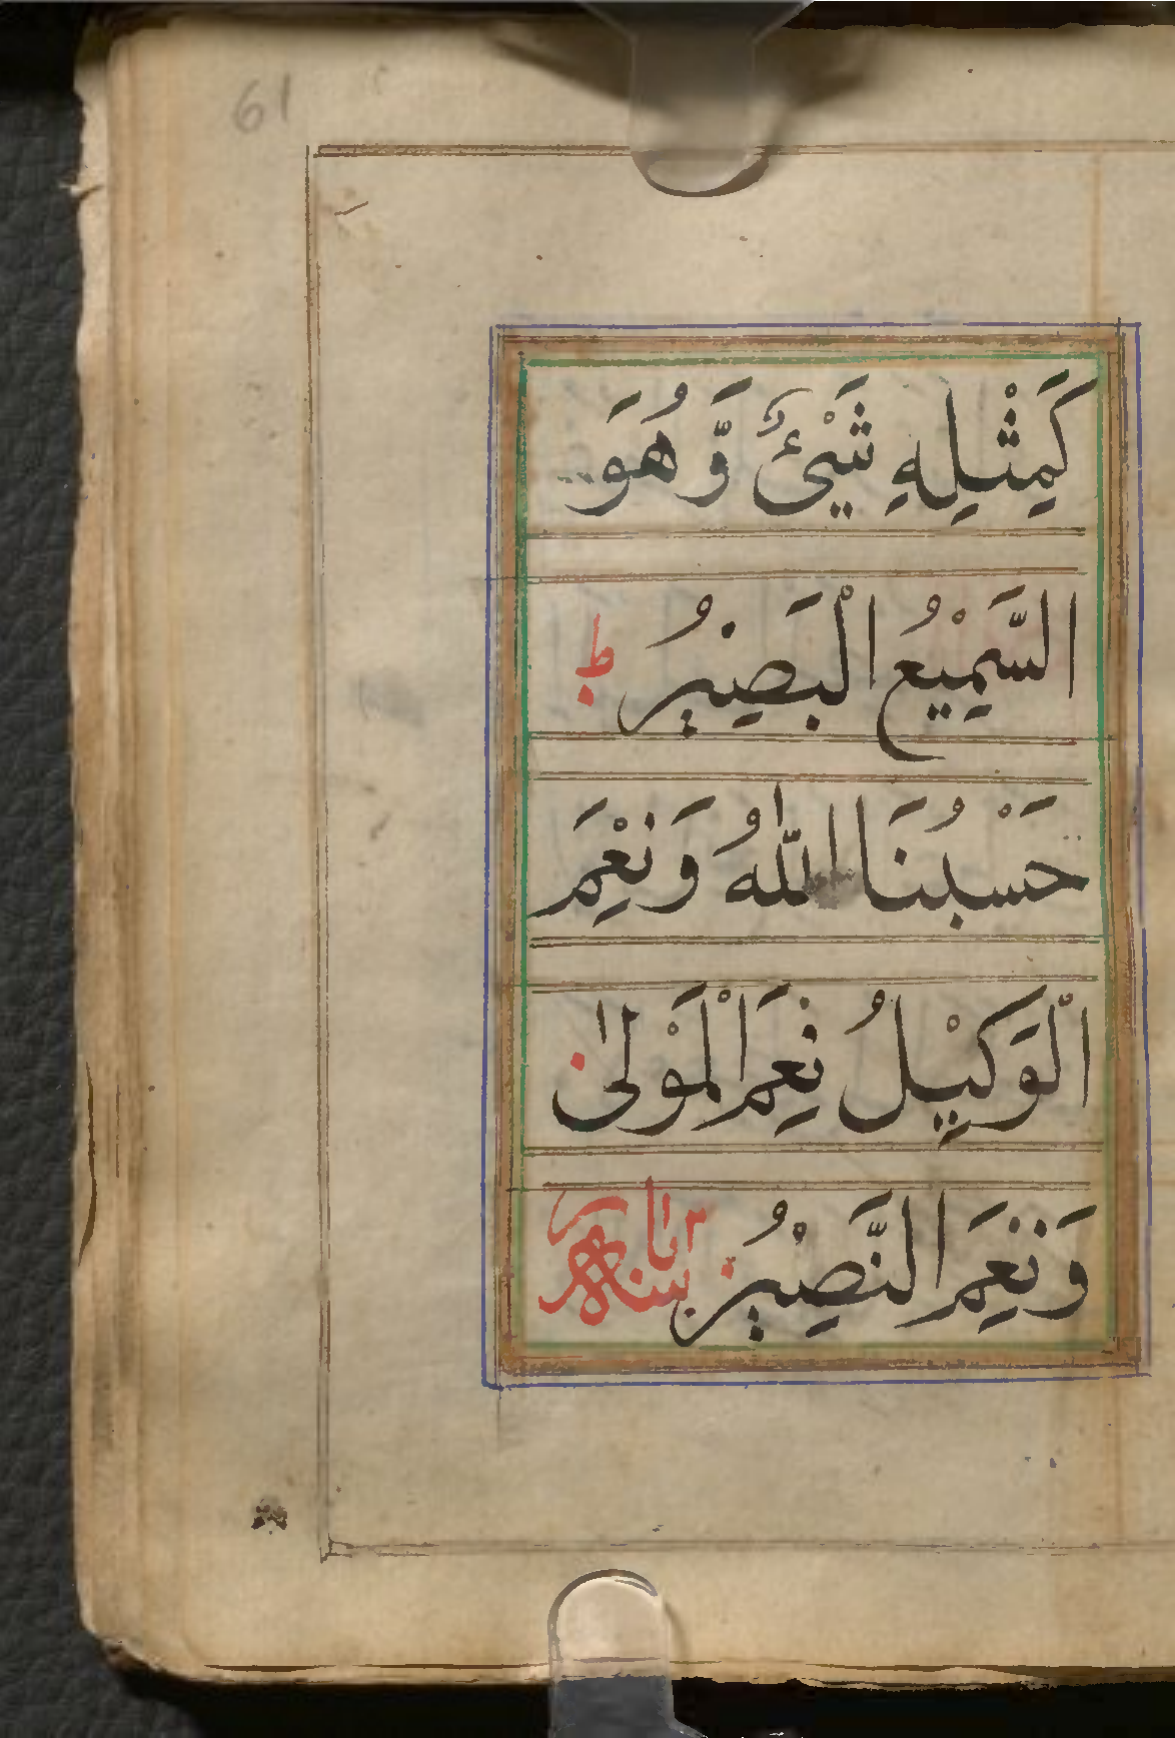 61
كَمِثْلِهٖ شَيْئٌ وَّهُوَ
السَّمِيْعُ الْبَصِيْرُ ط
حَسْبُنَا اللّٰهُ وَنِعْمَ
الْوَكِيْلُ نِعْمَ الْمَوْلٰى
وَنِعْمَ النَّصِيْرُ